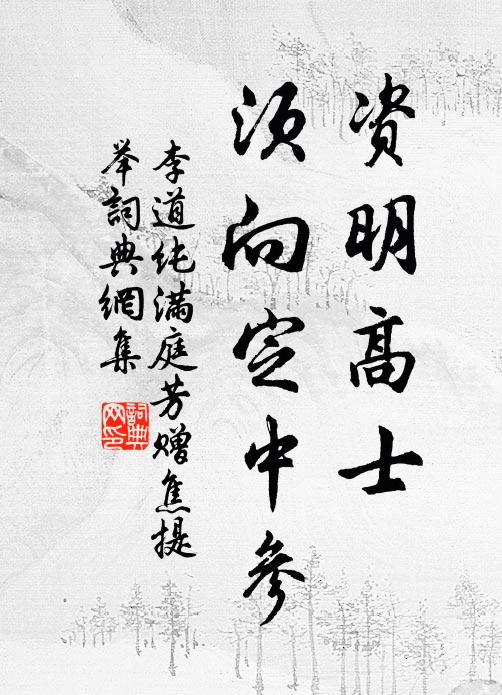 资明高士
须向定中参
李道纯满庭芳赠焦提
举詞典網集
詞典
网印